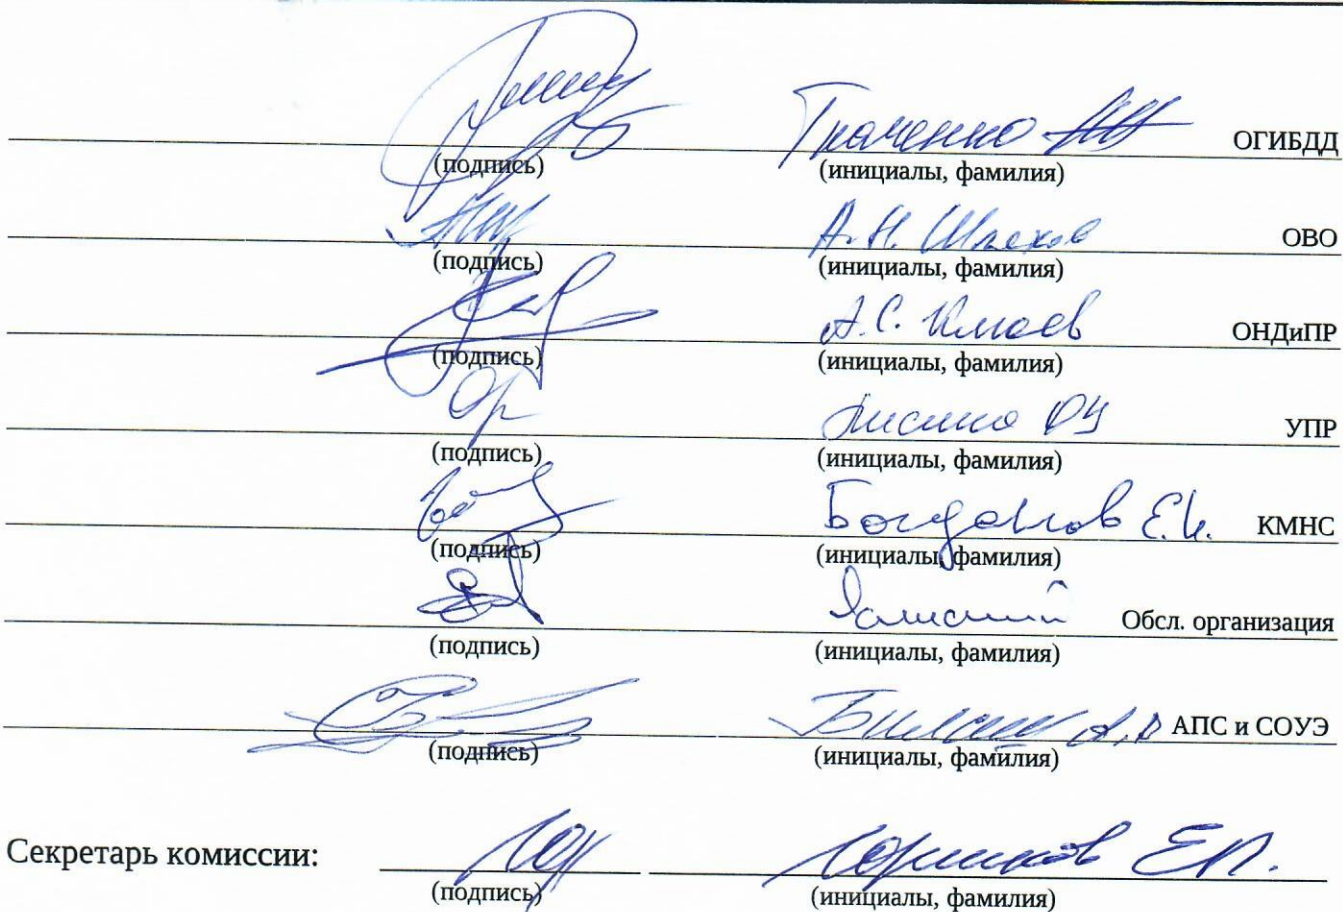 Ткаченко ОГИБДД
(подпись) (инициалы, фамилия)
А.Н. Шляхов ОВО
(подпись) (инициалы, фамилия)
А.С. ОНДиПР
(подпись) (инициалы, фамилия)
УПР
(подпись) (инициалы, фамилия)
Богданов Е.И. КМНС
(подпись) (инициалы, фамилия)
Обсл. организация
(подпись) (инициалы, фамилия)
АПС и СОУЭ
(подпись) (инициалы, фамилия)
Секретарь комиссии:
(подпись) (инициалы, фамилия)